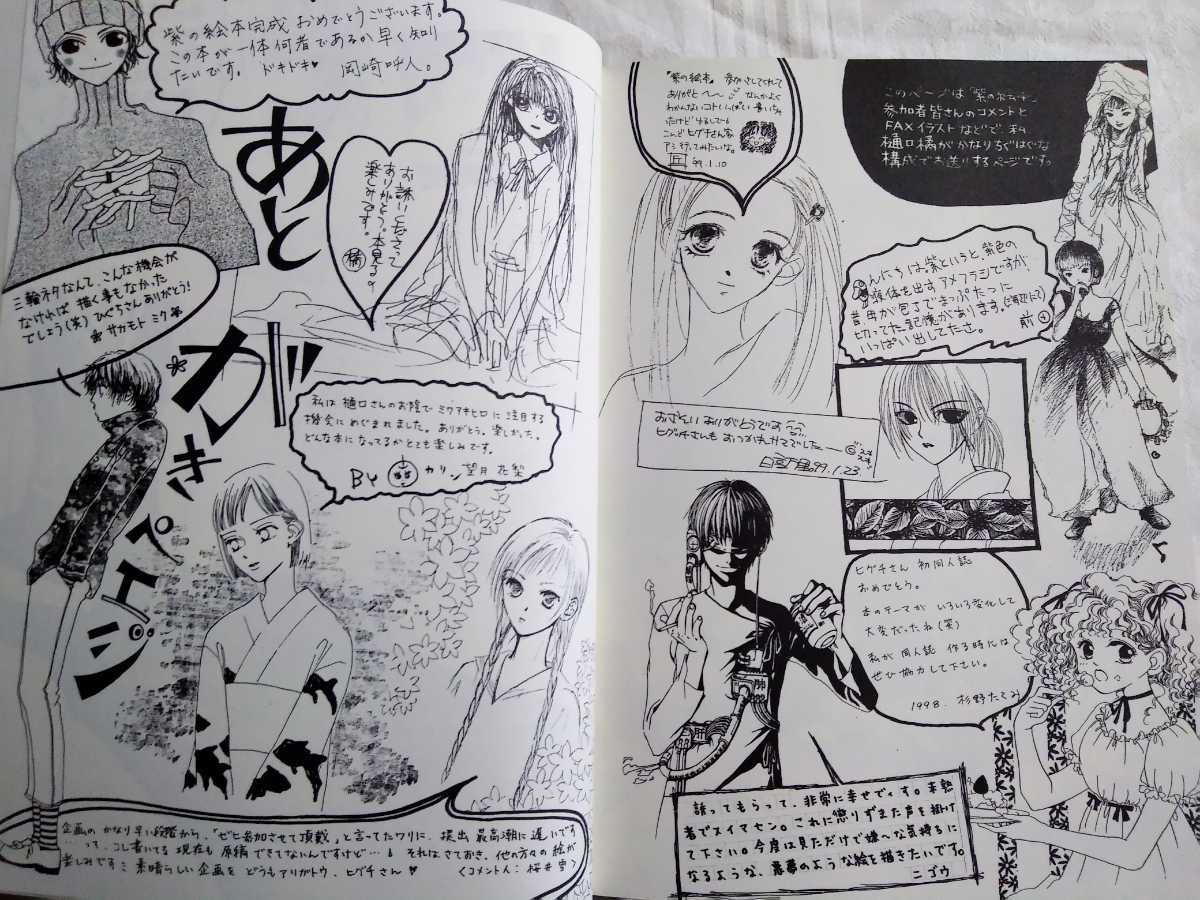 紫の絵本完成 おめでとうございます。
この本が一体何者であるか早く知り
たいです。 ドキドキ♥ 岡崎呼人。
あとがきペェジ
お誘いくださって
ありがとう。本見るの
楽しみです。
橘
三輪ネタなんて、こんな機会が
なければ 描く事もなかった
でしょう(笑) ひぐちさんありがとう!
サカモト ミク
私は樋口さんのお陰で ミワアキヒロ に注目する
機会にめぐまれました。ありがとう。楽しかった。
どんな本になってるかとても楽しみです。
BY カリン 望月 花梨
企画の かなり早い段階から、「ゼヒ参加させて頂戴」と言ってたワリに、提出 最高潮に遅いです
…って、コレ書いてる 現在も 原稿 できてないんですけど…。それはさておき、他の方々の絵が
楽しみです 素晴らしい企画を どうもアリガトウ、ヒグチさん♥ (コメント人:桜井雪)
『紫の絵本』 参加さしてくれて
ありがと〜〜 なんかよく
わかんないコトいっぱい 書いちゃ
たけど ゆるしてー
こんど ヒグチさん家
アシ 行ってみたいな。
99.1.10
このページは「紫の絵本」
参加者皆さんのコメントと
FAXイラストなどで、私
樋口橘がかなりちぐはぐな
構成でお送りするページです。
こんにちは、紫というと、紫色の
液体を出すアメフラシですが、
昔母が包丁でまっぷたつに
切ってた記憶があります。(海辺にて)
いっぱい出してたさ。
おさそい ありがとうです
ヒグチさんも おつかれさまでした——
99.1.23
ヒグチさん 初同人誌
おめでとう。
本のテーマが いろいろ変化して
大変だったね(笑)
私が 同人誌 作る時には
ぜひ協力して下さい。
1998. 杉野たてみ
肺
肝
誘ってもらって、非常に幸せでっす。未熟
者でスイマセン。これに懲りずまた声を掛け
て下さい。今度は見ただけで嫌〜な気持ちに
なるような、悪夢のような絵を描きたいです。
ニゴウ